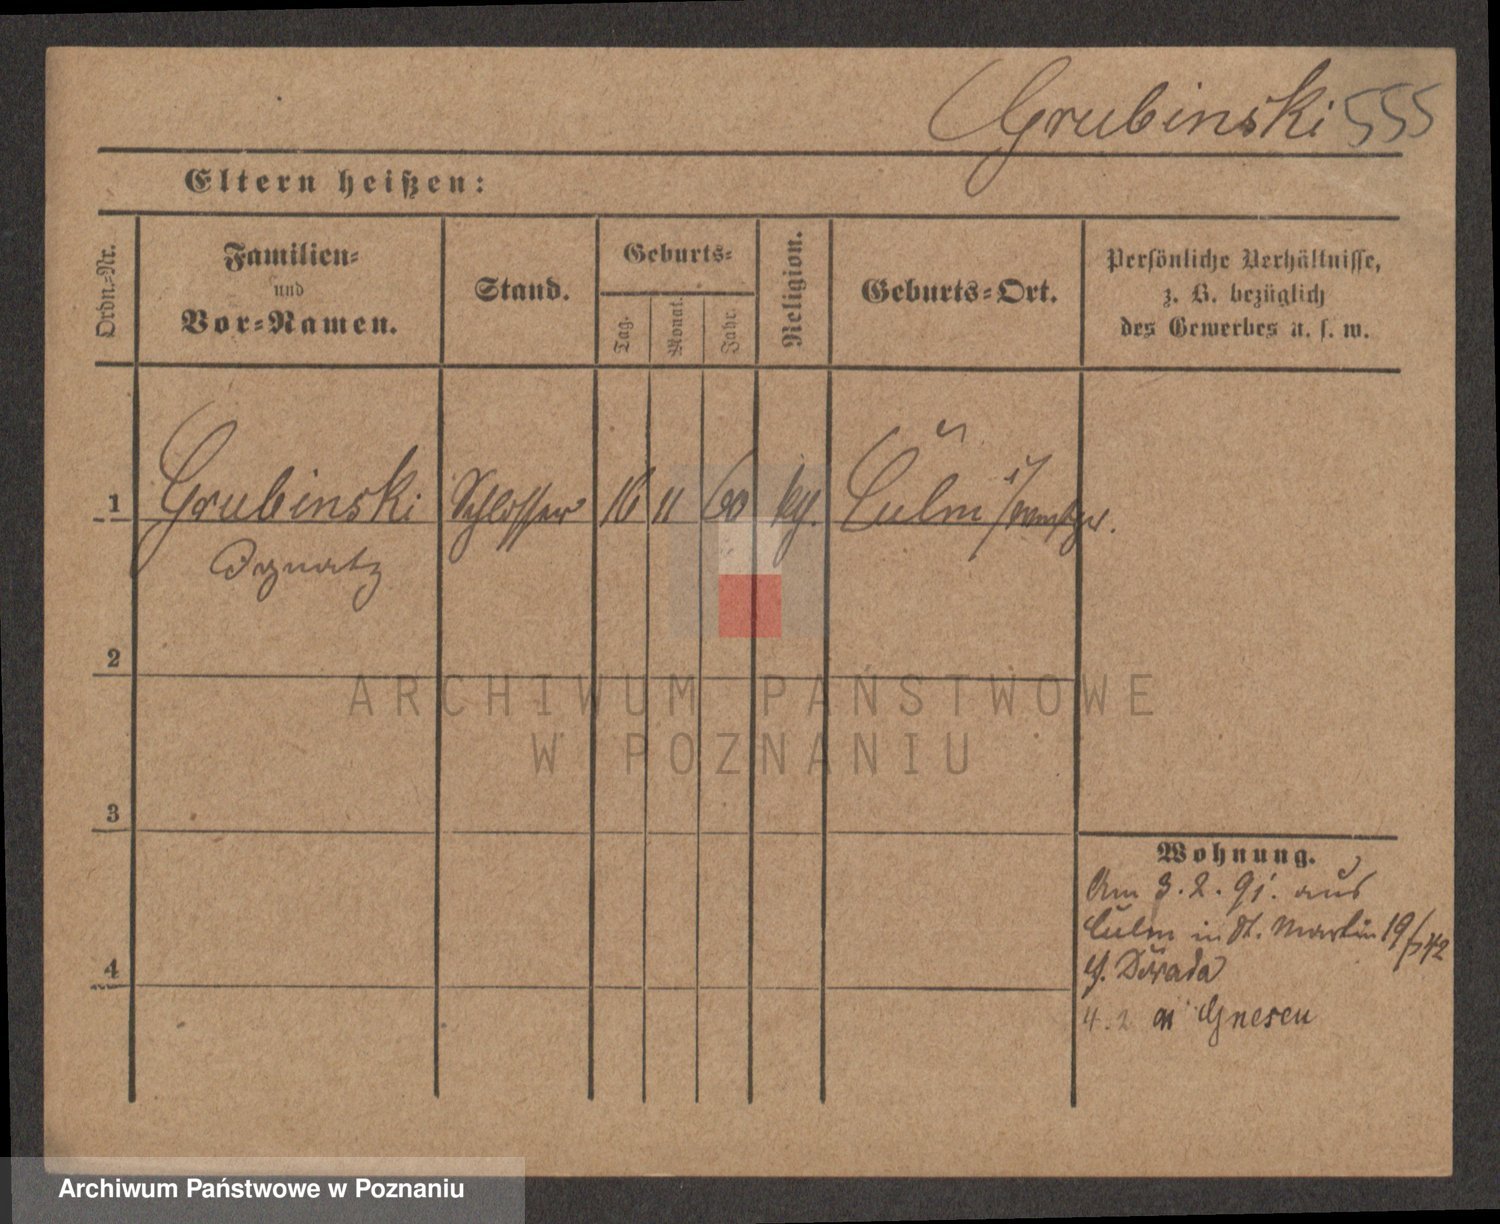 Grubinski 555
Eltern heißen:
Ordn.-Nr.
Familien-
und
Vor-Namen.
Stand.
Geburts-
Tag.
Monat.
Jahr.
Religion.
Geburts-Ort.
Persönliche Verhältnisse,
z. B. bezüglich
des Gewerbes u. s. w.
1 Grubinski Schlosser 16 11 60 Culm
Ignatz
2
3
4
Wohnung.
Am 3.2.91. aus
Culm in St. Martin 19/
4.2 Gnesen
ARCHIWUM PAŃSTWOWE
W POZNANIU
Archiwum Państwowe w Poznaniu